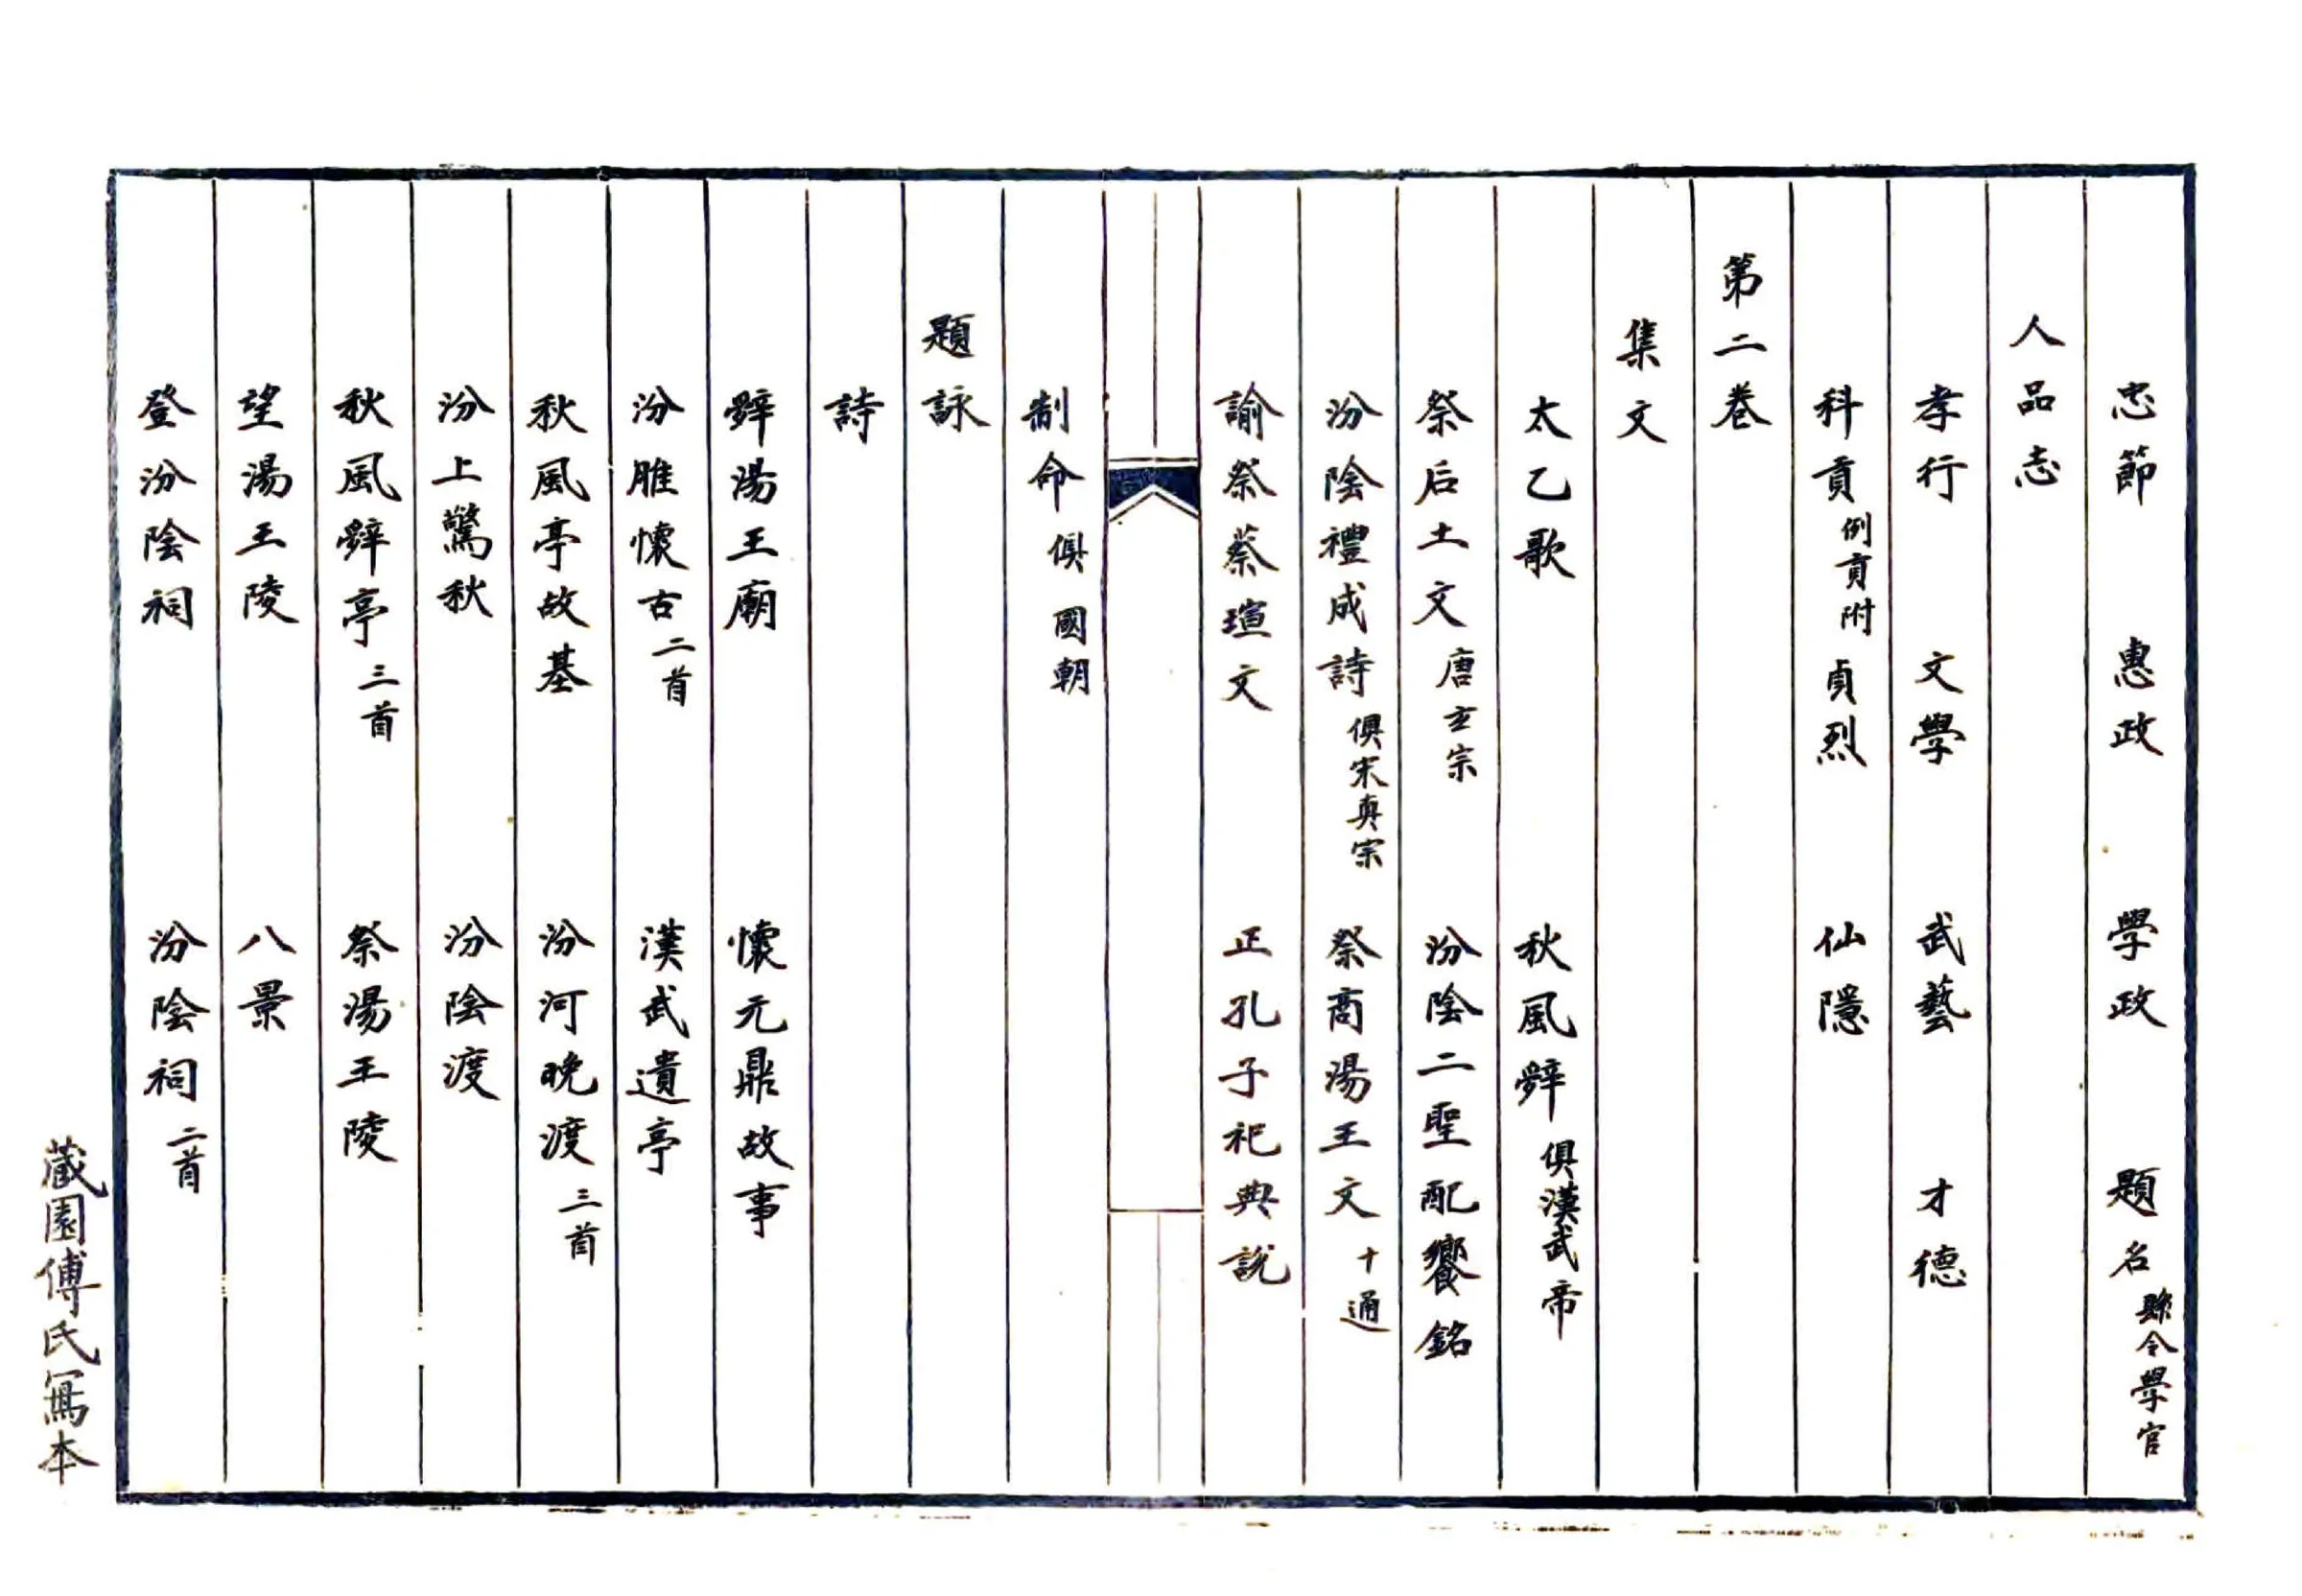 忠節　惠政　學政　題名縣令學官
人品志
孝行　文學　武藝　才德
科貢例貢附　貞烈　仙隱
第二卷
集文
太乙歌　秋風辤俱漢武帝
祭后土文唐玄宗　汾陰二聖配饗銘
汾陰禮成詩俱宋真宗　祭商湯王文十通
諭祭蔡瑄文　正孔子祀典說
制命俱國朝
題詠
詩
辤湯王廟　懷元鼎故事
汾脽懷古二首　漢武遺亭
秋風亭故基　汾河晚渡三首
汾上驚秋　汾陰渡
秋風辤亭三首　祭湯王陵
望湯王陵　八景
登汾陰祠　汾陰祠二首
藏園傅氏寫本